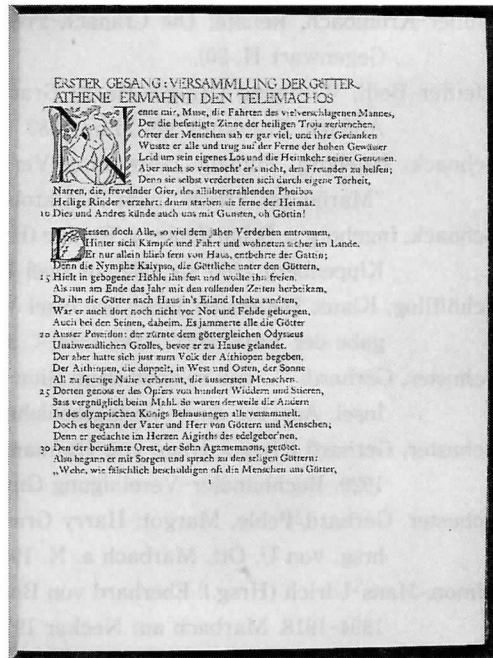 ERSTER GESANG: VERSAMMLUNG DER GÖTTER
ATHENE ERMAHNT DEN TELEMACHOS
Nenne mir, Muse, die Fahrten des vielverschlagenen Mannes,
Der die befestigte Zinne der heiligen Troja zerbrochen,
Örter der Menschen sah er gar viel, und ihre Gedanken
Wusste er alle und trug auf der Ferne der hohen Gewässer
Leid um sein eigenes Los und die Heimkehr seiner Genossen.
Aber auch so vermocht' er's nicht, den Freunden zu helfen;
Denn sie selbst verderbeten sich durch eigene Torheit,
Narren, die, frevelnder Gier, des allüberstrahlenden Phoibos
Heilige Rinder verzehrt: drum starben sie ferne der Heimat.
10 Dies und Andres künde auch uns mit Gunsten, oh Göttin!
Dessen doch Alle, so viel dem jähen Verderben entronnen,
Hinter sich Kämpfe und Fahrt und wohneten sicher im Lande.
Er nur allein blieb fern von Haus, entbehrte der Gattin;
Denn die Nymphe Kalypso, die Göttliche unter den Göttern,
15 Hielt in gebogener Höhle ihn fest und wollte ihn freien.
Als nun am Ende das Jahr mit den rollenden Zeiten herbeikam,
Da ihn die Götter nach Haus in's Eiland Ithaka sandten,
War er auch dort noch nicht vor Not und Fehde geborgen,
Auch bei den Seinen, daheim. Es jammerte alle die Götter
20 Ausser Poseidon: der zürnte dem göttergleichen Odysseus
Unabwendlichen Grolles, bevor er zu Hause gelandet.
Der aber hatte sich just zum Volk der Aithiopen begeben,
Der Aithiopen, die doppelt, in West und Osten, der Sonne
All zu feurige Nähe verbrennt, die äussersten Menschen.
25 Dorten genoss er des Opfers von hundert Widdern und Stieren,
Sass vergnüglich beim Mahl. So waren derweile die Andern
In des olympischen Königs Behausungen alle versammelt.
Doch es begann der Vater und Herr von Göttern und Menschen;
Denn er gedachte im Herzen Aigisths des edelgebor'nen,
30 Den der berühmte Orest, der Sohn Agamemnons, getötet.
Also begann er mit Sorgen und sprach zu den seligen Göttern:
„Wehe, wie fälschlich beschuldigen oft die Menschen uns Götter,